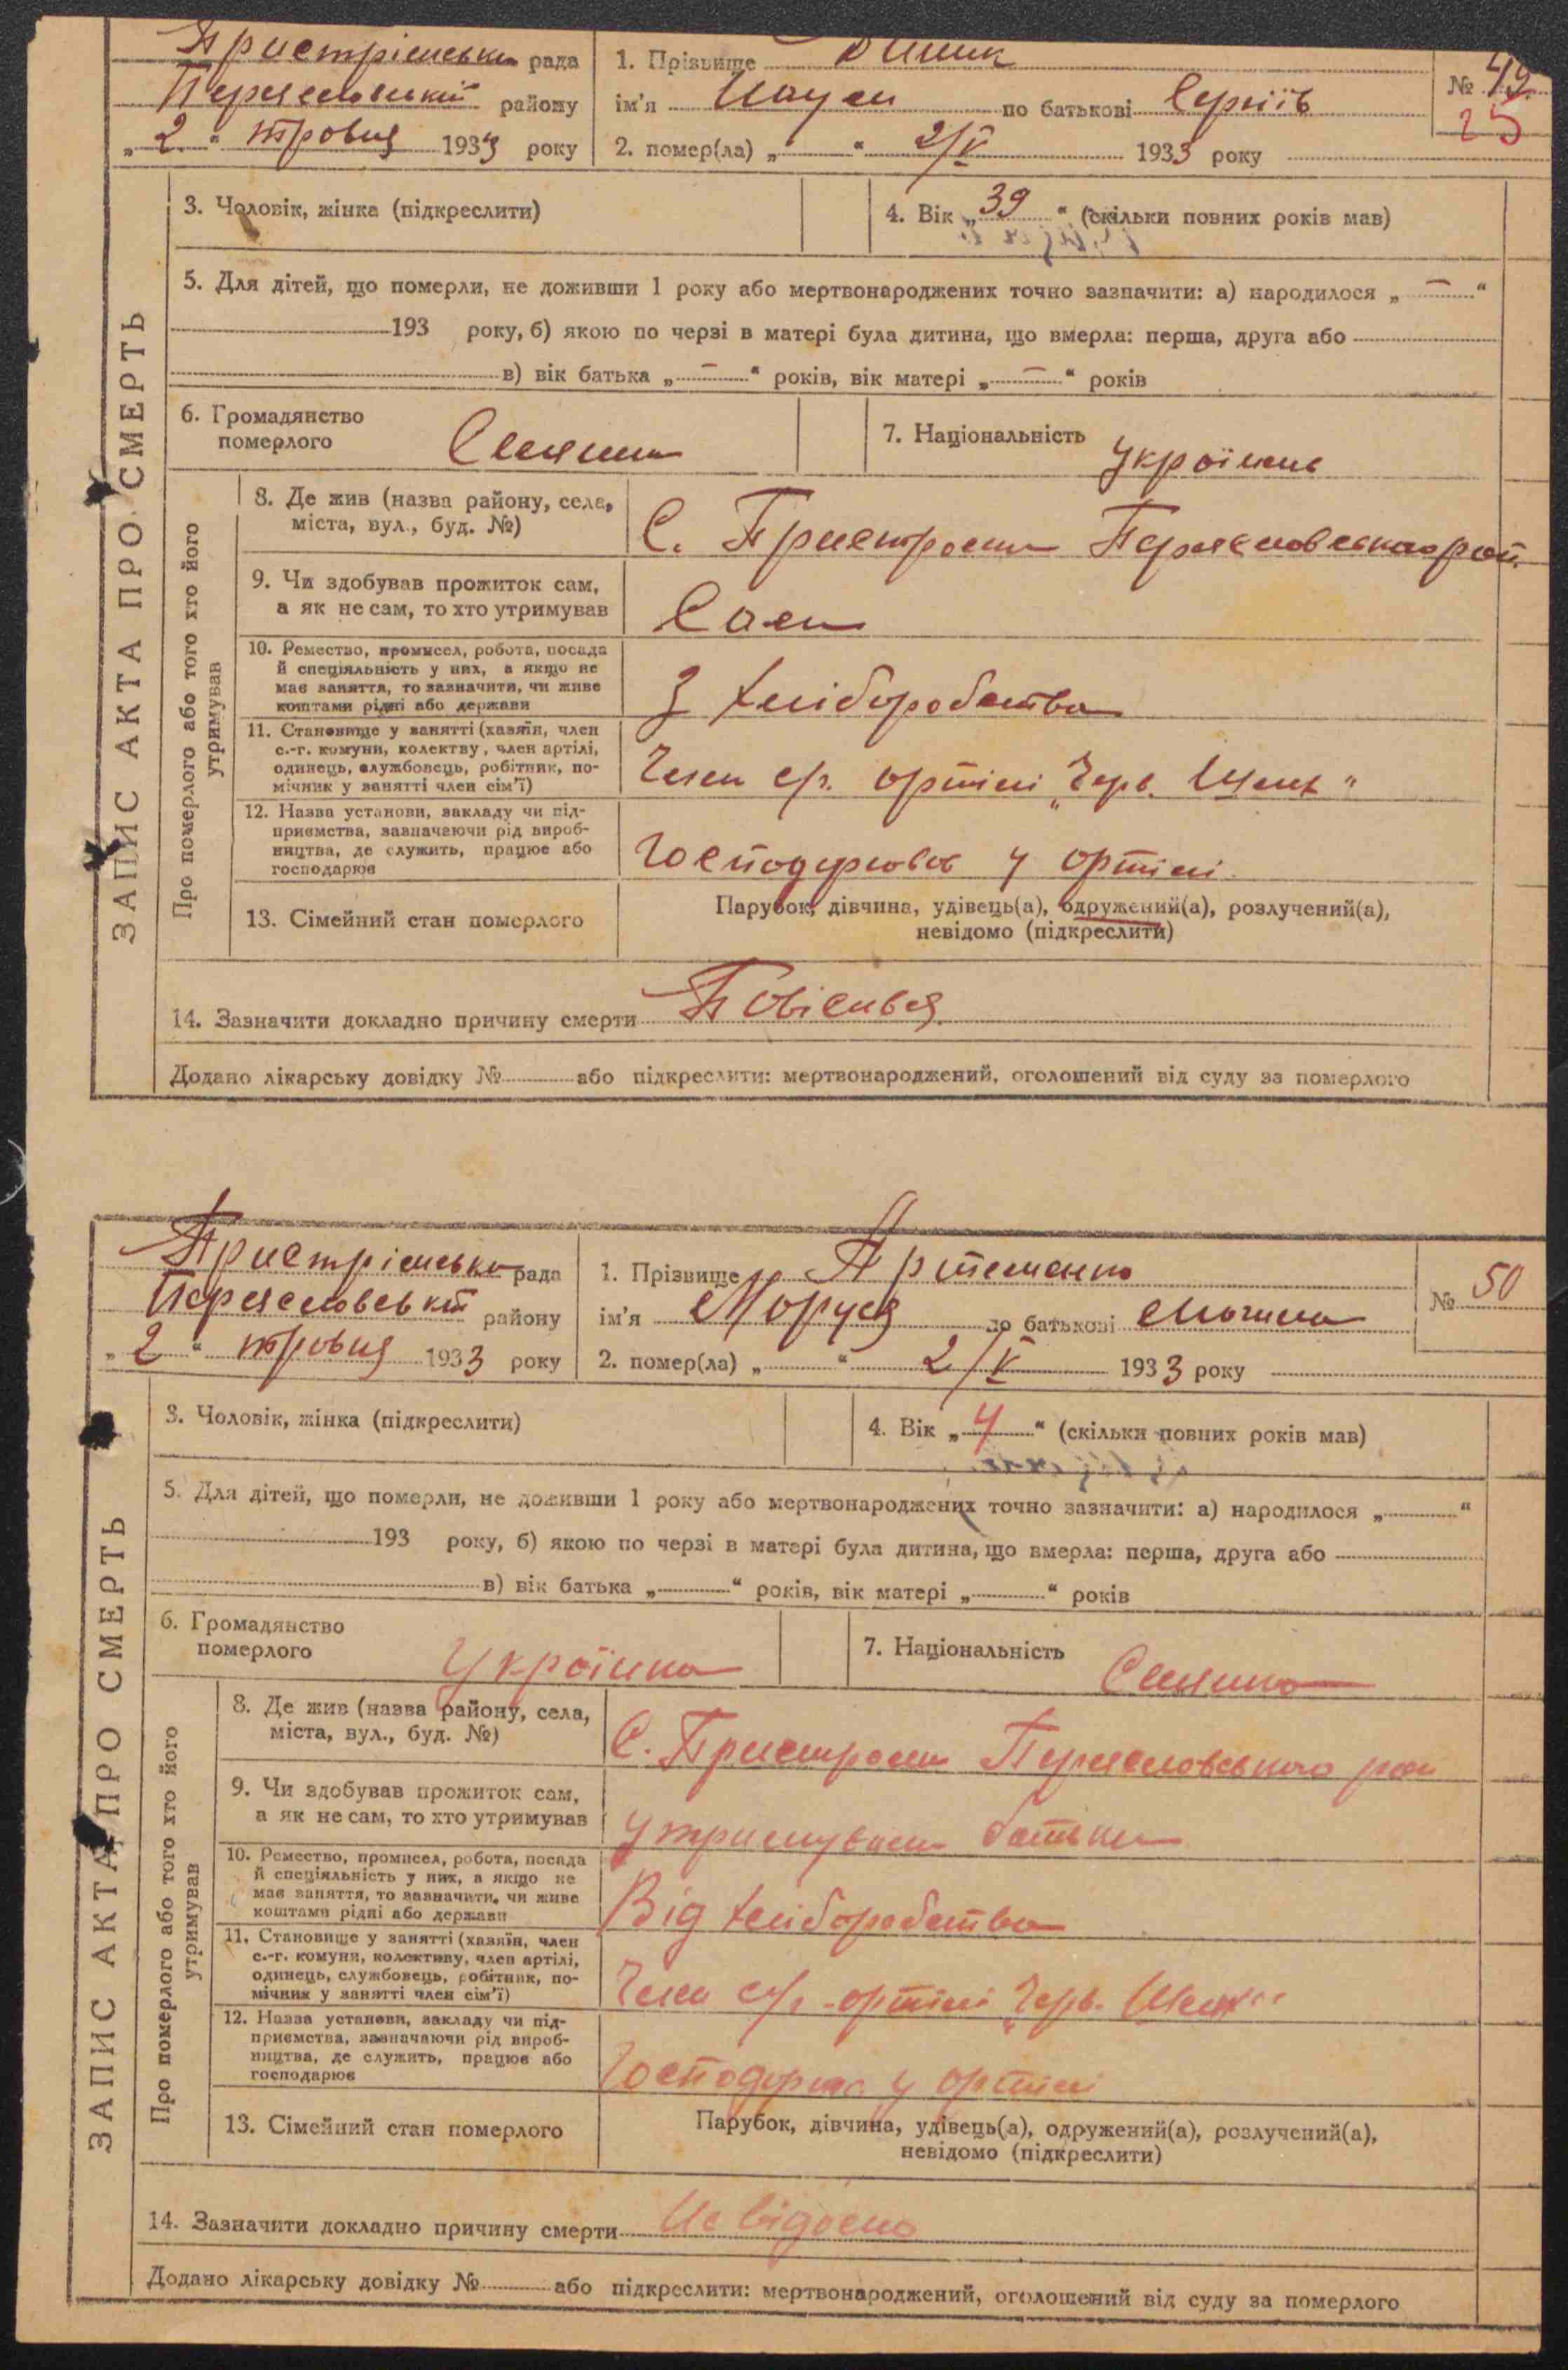 Пристрімська рада
Переяславський району
„ 2 “ травня 1933 року
1. Прізвище
ім'я Наум по батькові Сергіїв
2. помер(ла) „ “ 2/V 1933 року
№ 49
25
ЗАПИС АКТА ПРО СМЕРТЬ
3. Чоловік, жінка (підкреслити)
4. Вік „ 39 “ (скільки повних років мав)
5. Для дітей, що померли, не доживши 1 року або мертвонароджених точно зазначити: а) народилося „ — “
193 року, б) якою по черзі в матері була дитина, що вмерла: перша, друга або
в) вік батька „ — “ років, вік матері „ — “ років
6. Громадянство
померлого Селянин
7. Національність Українець
Про померлого або того хто його
утримував
8. Де жив (назва району, села,
міста, вул., буд. №)
С. Пристроми Переяславського рай.
9. Чи здобував прожиток сам,
а як не сам, то хто утримував
Сам
10. Ремество, промисел, робота, посада
й спеціяльність у них, а якщо не
має заняття, то зазначити, чи живе
коштами рідні або держави
З хліборобства
11. Становище у занятті (хазяїн, член
с.-г. комуни, колектву, член артілі,
одинець, службовець, робітник, по-
мічник у занятті член сім'ї)
Член с/г. артілі „Черв. Шлях“
12. Назва установи, закладу чи під-
приємства, зазначаючи рід вироб-
ництва, де служить, працює або
господарює
Господарював у артілі
13. Сімейний стан померлого
Парубок, дівчина, удівець(а), одружений(а), розлучений(а),
невідомо (підкреслити)
14. Зазначити докладно причину смерти Повісився
Додано лікарську довідку № або підкреслити: мертвонароджений, оголошений від суду за померлого
Пристрімська рада
Переяславський району
„ 2 “ травня 1933 року
1. Прізвище Артеменко
ім'я Маруся по батькові
2. помер(ла) „ “ 2/V 1933 року
№ 50
ЗАПИС АКТА ПРО СМЕРТЬ
3. Чоловік, жінка (підкреслити)
4. Вік „ 4 “ (скільки повних років мав)
5. Для дітей, що померли, не доживши 1 року або мертвонароджених точно зазначити: а) народилося „ “
193 року, б) якою по черзі в матері була дитина, що вмерла: перша, друга або
в) вік батька „ “ років, вік матері „ “ років
6. Громадянство
померлого Українка
7. Національність Селянка
Про померлого або того хто його
утримував
8. Де жив (назва району, села,
міста, вул., буд. №)
С. Пристроми Переяславського рай
9. Чи здобував прожиток сам,
а як не сам, то хто утримував
Утримували батьки
10. Ремество, промисел, робота, посада
й спеціяльність у них, а якщо не
має заняття, то зазначити, чи живе
коштами рідні або держави
Від хліборобства
11. Становище у занятті (хазяїн, член
с.-г. комуни, колективу, член артілі,
одинець, службовець, робітник, по-
мічник у занятті член сім'ї)
Член с/г артілі „Черв. Шлях“
12. Назва установи, закладу чи під-
приємства, зазначаючи рід вироб-
ництва, де служить, працює або
господарює
у артілі
13. Сімейний стан померлого
Парубок, дівчина, удівець(а), одружений(а), розлучений(а),
невідомо (підкреслити)
14. Зазначити докладно причину смерти Не відомо
Додано лікарську довідку № або підкреслити: мертвонароджений, оголошений від суду за померлого